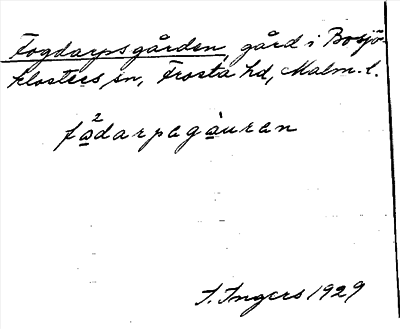 Fogdarpsgården, gård i Bosjö-
klosters sn, Frosta hd, Malm. l.
fa²darpagàuran
I. Ingers 1929